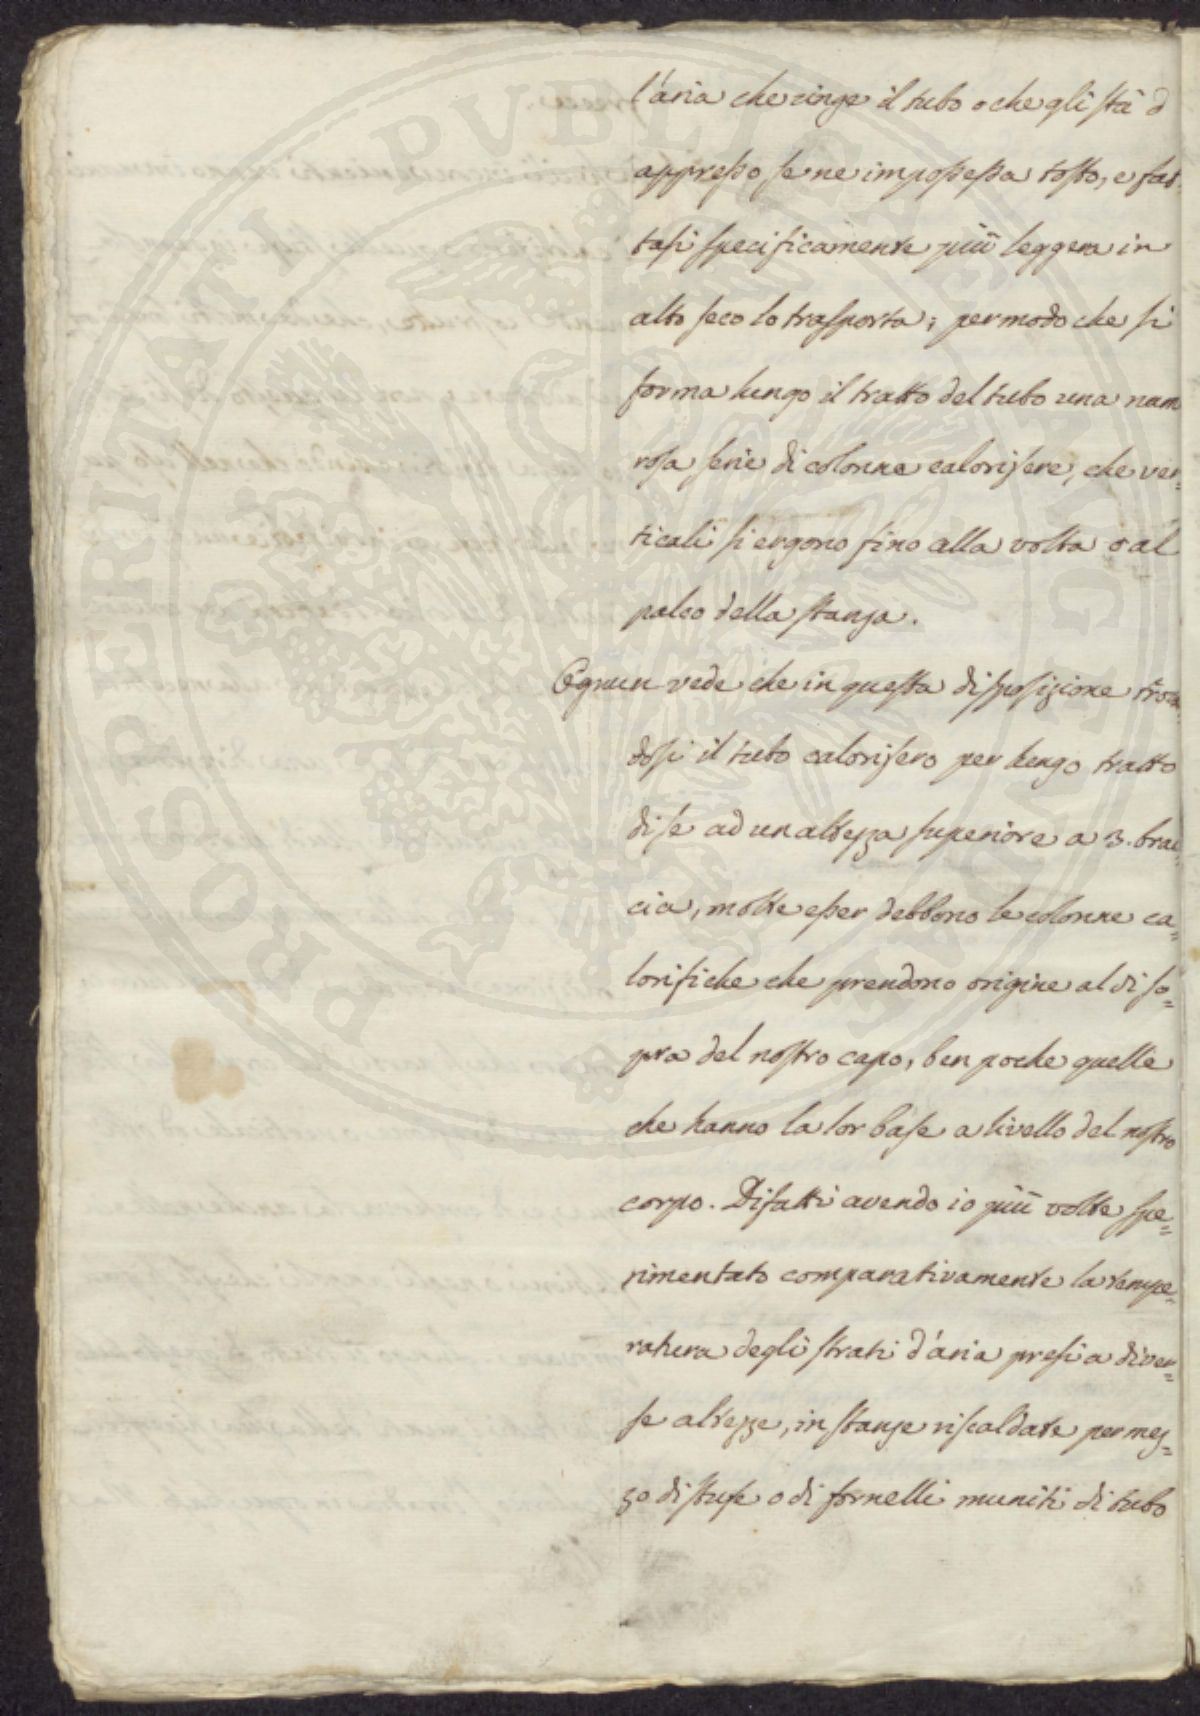 l'aria che cinge il tubo o che gli stà d
appresso se ne impossessa tosto, e fat-
tasi specificamente più leggera in
alto seco lo trasporta; per modo che si
forma lungo il tratto del tubo una num
rosa serie di colonne calorifere, che ver=
ticali si ergono fino alla volta o al
palco della stanza.
Ognun vede che in questa disposizione trovan
dosi il tubo calorifero per lungo tratto
di sé ad un altezza superiore a 3. brac=
cia, molte esser debbono le colonne ca=
lorifiche che prendono origine al di so=
pra del nostro capo, ben poche quelle
che hanno la lor base a livello del nostro
corpo. Difatti avendo io più volte spe=
rimentato comparativamente la tempe=
ratura degli strati d'aria presi a diver=
se altezze, in stanze riscaldate per mez=
zo di stufe o di fornelli muniti di tubo
PROSPERITATI PVBLICAE AVGENDAE